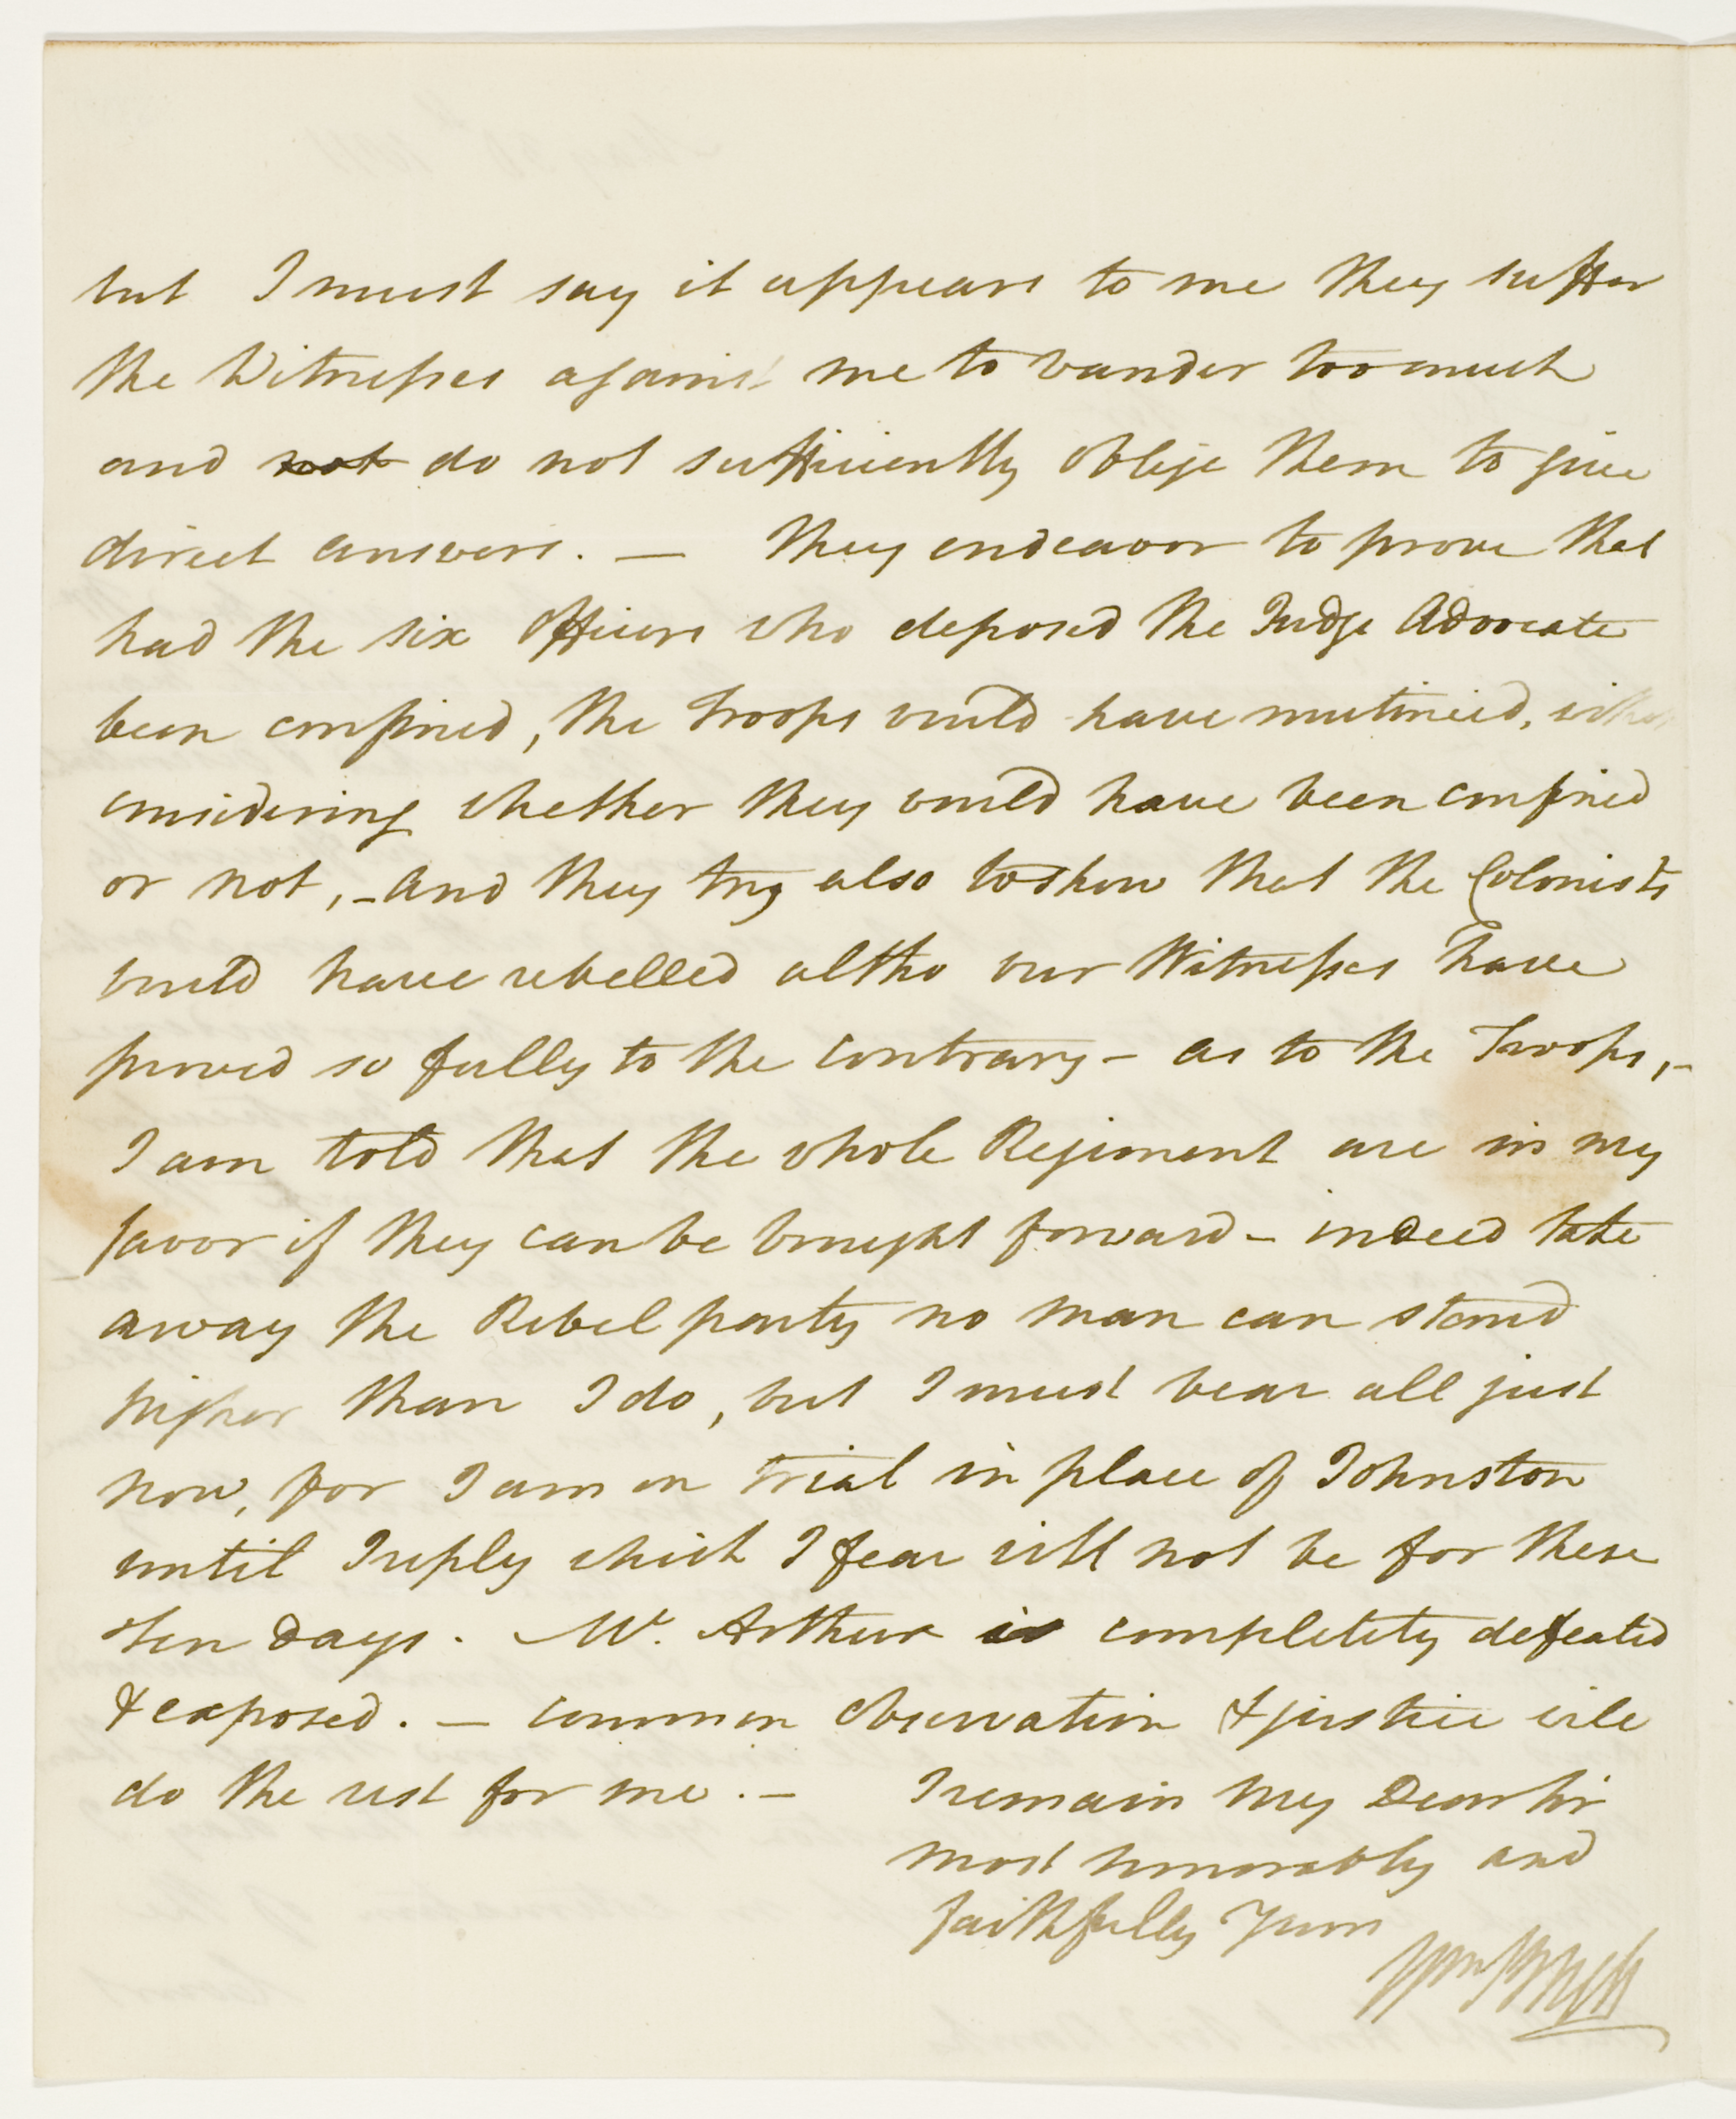 but I must say it appears to me they suffer
the Witnesses against me to wander too much
and not do not sufficiently oblige them to give
direct answers. — They endeavor to prove that
had the six Officers who deposed the Judge Advocate
been confined, the Troops would have mutinied, without
considering whether they would have been confined
or not, - and they try also to show that the Colonists
would have rebelled altho our Witnesses have
proved so fully to the contrary - as to the Troops, -
I am told that the whole Regiment are in my
favor if they can be brought forward - indeed take
away the Rebel party no man can stand
higher than I do, but I must bear all just
now, for I am on trial in place of Johnston
until I reply which I fear will not be for these
ten days. — Mc. Arthur is completely defeated
& exposed. — common observation & justice will
do the rest for me. -
I remain my Dear Sir
most honorably and
faithfully Yours
Wm Bligh